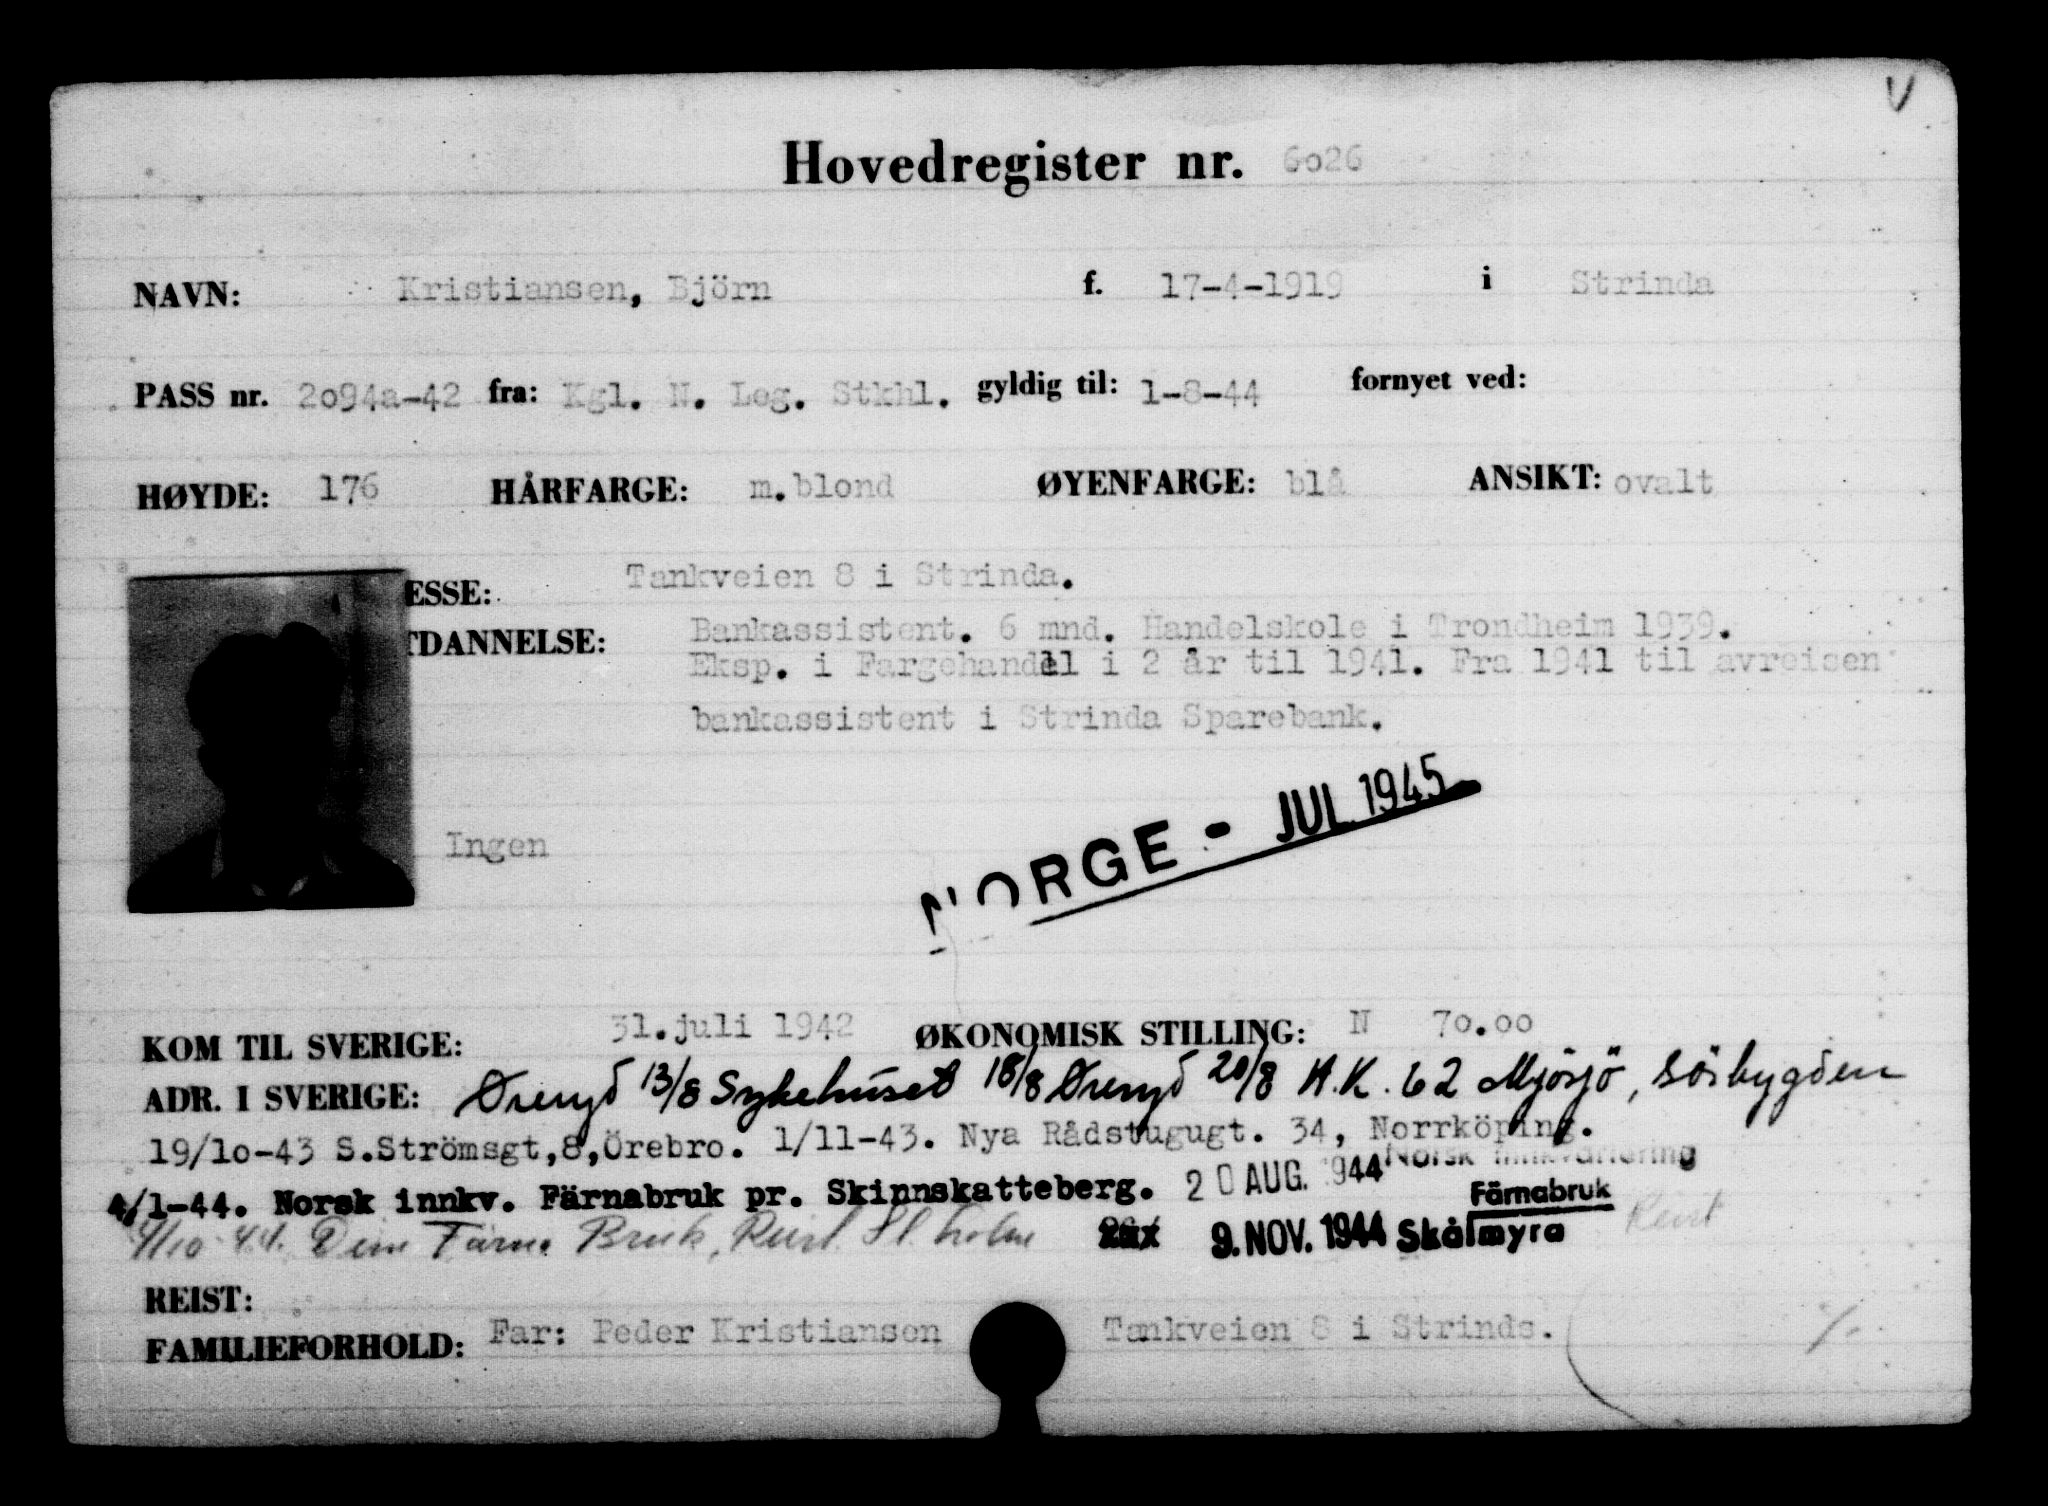 V
Hovedregister nr. 6o26
NAVN: Kristiansen, Björn f. 17-4-1919 i Strinda
PASS nr. 2o94a-42 fra: Kgl. N. Leg. Stkhl. gyldig til: 1-8-44 fornyet ved:
HØYDE: 176 HÅRFARGE: m.blond ØYENFARGE: blå ANSIKT: ovalt
ESSE: Tankveien 8 i Strinda.
TDANNELSE: Bankassistent. 6 mnd. Handelskole i Trondheim 1939.
Eksp. i Fargehandel i 2 år til 1941. Fra 1941 til avreisen
bankassistent i Strinda Sparebank.
NORGE - JUL 1945
Ingen
KOM TIL SVERIGE: 31.juli 1942 ØKONOMISK STILLING: N 7o.oo
ADR. I SVERIGE: Øreryd 13/8 Sykehuset 18/8 Øreryd 20/8 A.K. 62 Mjösjö, Sörbygden
19/1o-43 S.Strömsgt,8,Örebro. 1/11-43. Nya Rådstugugt. 34, Norrköping.
4/1-44. Norsk innkv. Färnabruk pr. Skinnskatteberg. 20 AUG. 1944 Norsk innkvartering Färnabruk
4/10-44. Dim Färna Bruk, Reist St.holm 9. NOV. 1944 Skålmyra Reist
REIST:
FAMILIEFORHOLD: Far: Peder Kristiansen Tankveien 8 i Strinds. %.